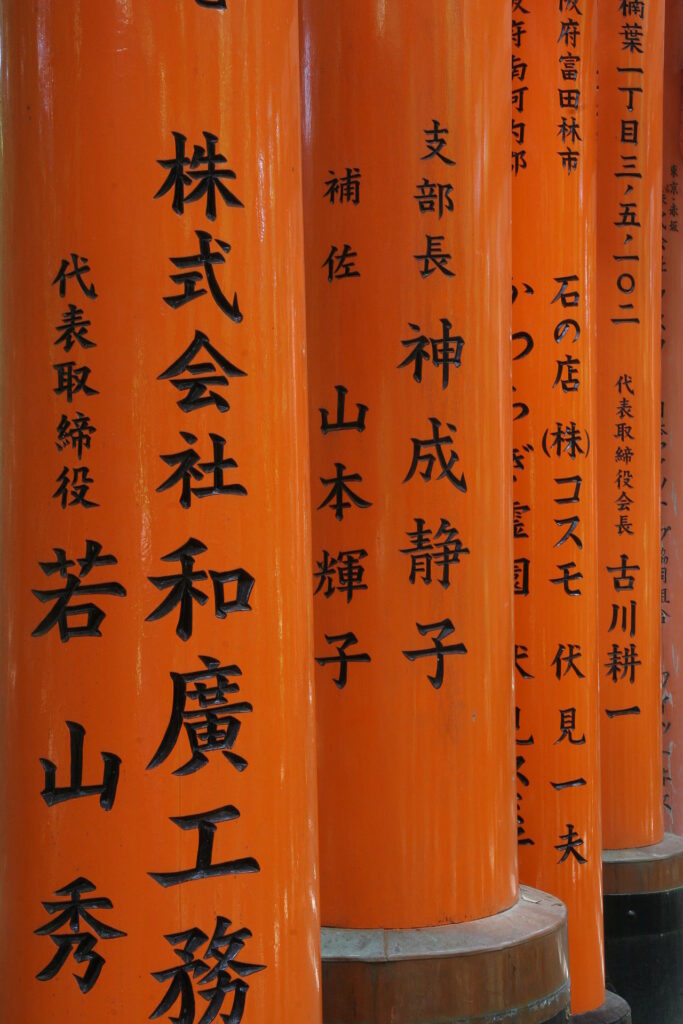 東京・赤坂
楠葉一丁目三ノ五ノ一〇二
代表取締役会長 古川耕一
阪府富田林市 石の店 (株)コスモ 伏見一夫
阪府南河内郡 かつらぎ霊園
支部長 神成静子
補佐 山本輝子
株式会社和廣工務
代表取締役 若山秀